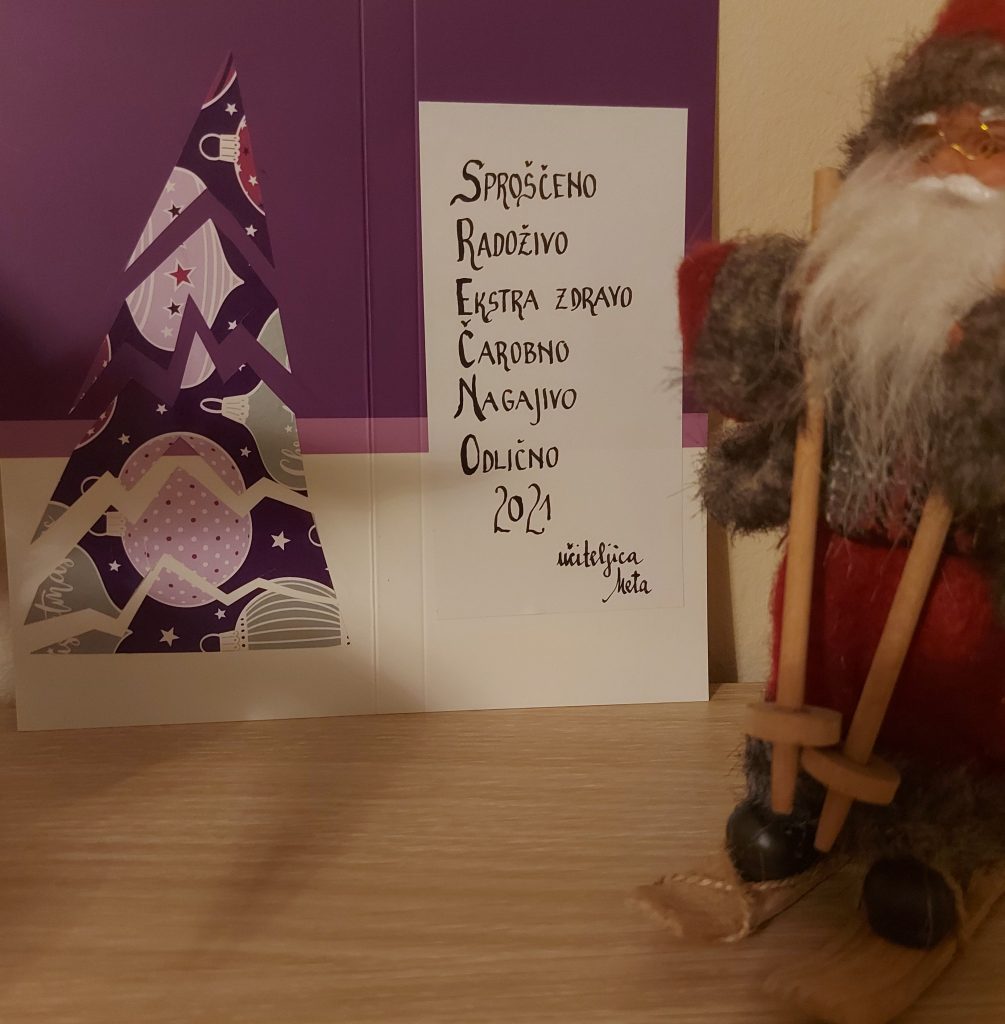 Sproščeno
Radoživo
Ekstra zdravo
Čarobno
Nagajivo
Odlično
2021
učiteljica
Meta